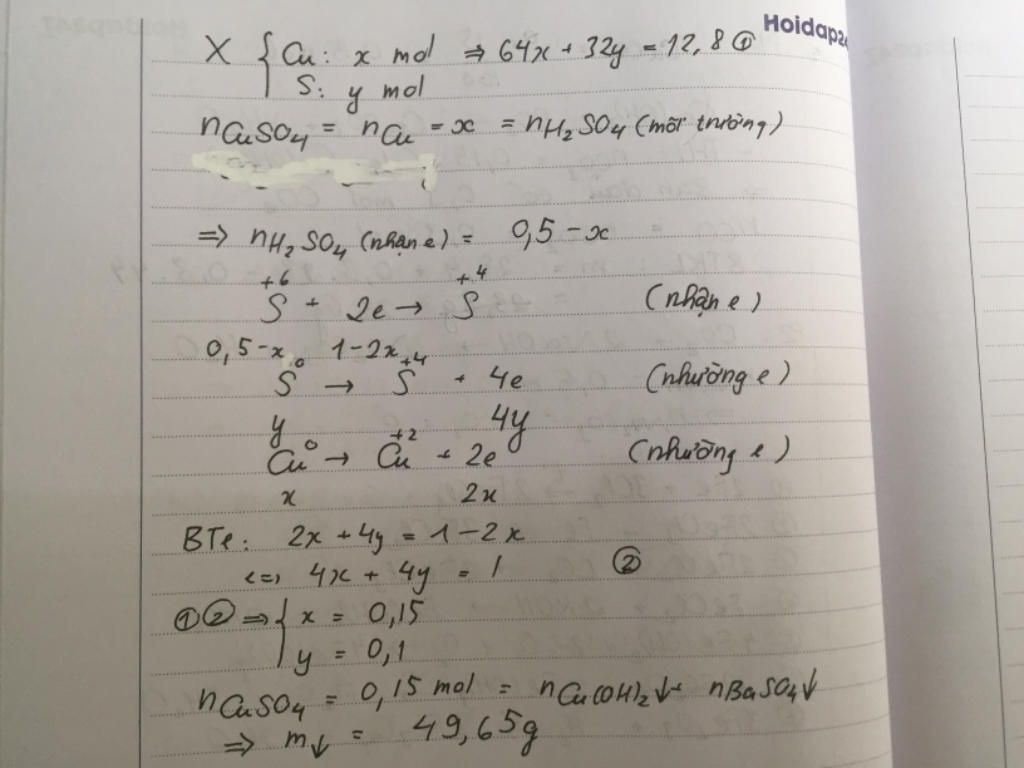 Hoidap24
X { Cu: x mol ⇒ 64x + 32y = 12,8 ①
S: y mol
nCuSO4 = nCu = x = nH2SO4 (môi trường)
⇒ nH2SO4 (nhận e) = 0,5 - x
+6 +4
S + 2e → S (nhận e)
0,5-x 1-2x
0 +4
S → S + 4e (nhường e)
y 4y
0 +2
Cu → Cu + 2e (nhường e)
x 2x
BTe: 2x + 4y = 1 - 2x
<=> 4x + 4y = 1 ②
①② ⇒ { x = 0,15
y = 0,1
nCuSO4 = 0,15 mol = nCu(OH)2↓ + nBaSO4↓
⇒ m↓ = 49,65g